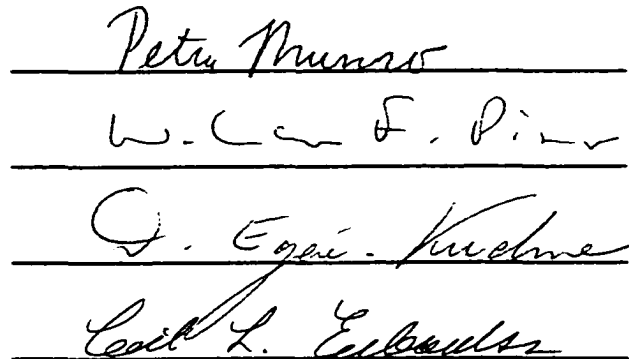 Petra Munro
William F. Pinar
D. Egéa-Kuehne
Cecil L. Eubanks